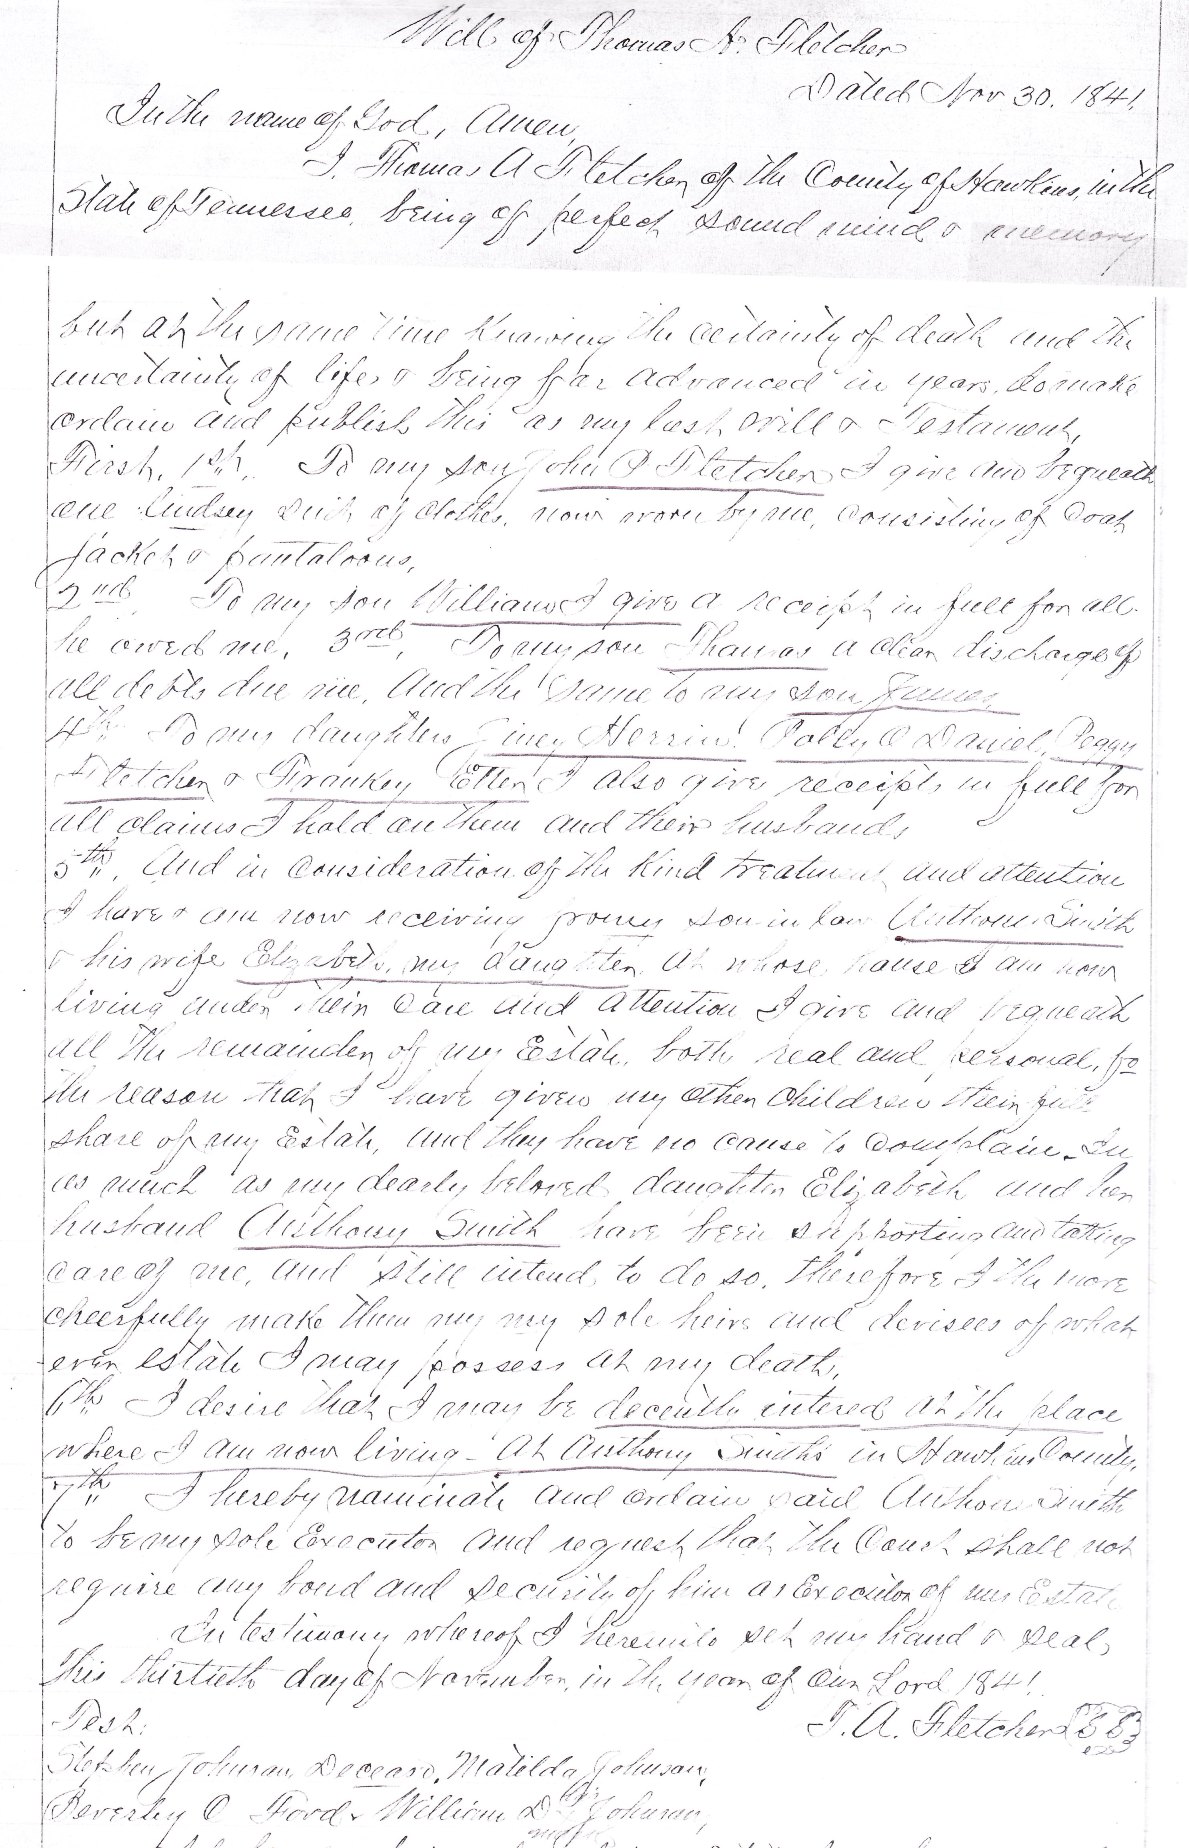 Will of Thomas A. Fletcher
Dated Nov 30. 1841.
In the name of God, Amen,
I, Thomas A Fletcher of the County of Hawkins, in the
State of Tennessee, being of perfect sound mind & memory
but at the same time knowing the certainty of death and the
uncertainty of life, & being far advanced in years, do make
ordain and publish this as my last will & Testament,
First, 1st, To my son John P Fletcher I give and bequeath
one lindsey suit of clothes, now worn by me, consisting of coat
jacket & pantaloons,
2nd To my son William I give a receipt in full for all
he owed me, 3rd, To my son Thomas a clear discharge of
all debts due me, And the same to my son James
4th To my daughters Jincy Herrin, Polly O Daniel, Peggy
Fletcher & Frankey Etter I also give receipts in full for
all claims I hold on them and their husbands
5th, And in consideration of the kind treatment and attention
I have & am now receiving from my son in law Anthony Smith
& his wife Elizabeth, my daughter, at whose house I am now
living under their care and attention I give and bequeath
all the remainder of my Estate, both real and personal, for
the reason that I have given my other children their full
share of my Estate, and they have no cause to complain. In
as much as my dearly beloved daughter Elizabeth and her
husband Anthony Smith have been supporting and taking
care of me, and still intend to do so, therefore I the more
cheerfully make them my my sole heirs and devisees of what
ever estate I may possess at my death,
6th I desire that I may be decently intered at the place
where I am now living - at Anthony Smith's in Hawkins County,
7th I hereby nominate and ordain said Anthony Smith
to be my sole Executor and request that the Court shall not
require any bond and security of him as Executor of my Estate
In testimony whereof I hereunto set my hand & seal,
this thirtieth day of November, in the year of our Lord 1841.
T. A. Fletcher
Test:
Stephen Johnson, Deceasd, Matilda Johnson,
Beverley O Ford, William D Johnson,